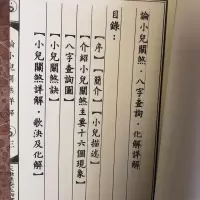 論小兒關煞·八字查詢·化解詳解
目錄：
【序】【簡介】【小兒描述】
【介紹小兒關煞主要十六個現象】
【八字查詢圖】
【小兒關煞訣】
【小兒關煞詳解·歌決及化解】
論小兒關煞詳解